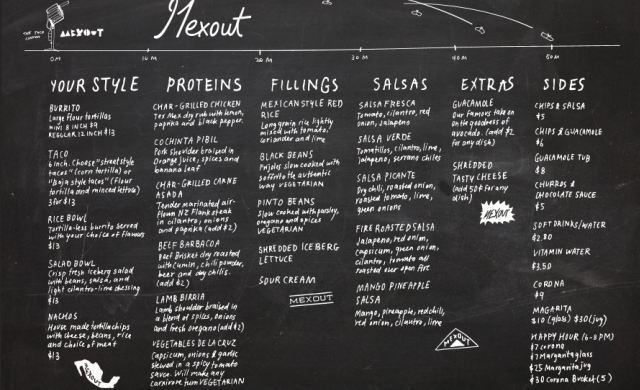 THE TACO CANNON
MEXOUT
Mexout
0M 10M 20M 30M 40M 50M
YOUR STYLE
BURRITO
Large flour tortillas
MINI 8 INCH $9
REGULAR 12 INCH $13
TACO
6 inch. Choose "street style
tacos" (corn tortilla) or
"Baja style tacos" (flour
tortilla and minced lettuce)
3 for $13
RICE BOWL
Tortilla-less burrito served
with your choice of flavours
$13
SALAD BOWL
Crisp fresh iceberg salad
with beans, salsa, and
light cilantro-lime dressing
$13
NACHOS
House made tortilla chips
with cheese, beans, rice
and choice of meat
$13
MEXOUT
PROTEINS
CHAR-GRILLED CHICKEN
Tex Mex dry rub with lemon,
paprika and black pepper.
COCHINTA PIBIL
Pork shoulder braised in
Orange juice, spices and
banana leaf
CHAR-GRILLED CARNE
ASADA
Tender marinated air-
flown NZ Flank steak
in cilantro, onions
and paprika (add $2)
BEEF BARBACOA
Beef Brisket dry roasted
with Cumin, chili powder,
beer and dry chilis.
(add $2)
LAMB BIRRIA
Lamb shoulder braised in
a blend of spices, onions
and fresh oregano (add $2)
VEGETABLES DE LA CRUZ
Capsicum, onions & garlic
stewed in a spicy tomato
sauce. Will make any
carnivore turn VEGETARIAN
FILLINGS
MEXICAN STYLE RED
RICE
Long grain rice lightly
mixed with tomato,
coriander and lime
BLACK BEANS
Frijoles slow cooked with
soffrito the authentic
way VEGETARIAN
PINTO BEANS
Slow cooked with parsley,
oregano and spices
VEGETARIAN
SHREDDED ICEBERG
LETTUCE
SOUR CREAM
MEXOUT
SALSAS
SALSA FRESCA
Tomato, cilantro, red
onion, jalapeno
SALSA VERDE
Tomatillos, cilantro, lime,
jalapeno, serrano chiles
SALSA PICANTE
Dry chili, roasted onion,
roasted tomato, lime,
green onions
FIRE ROASTED SALSA
Jalapeno, red onion,
capsicum, green onion,
cilantro, tomato all
roasted over open fire
MANGO PINEAPPLE
SALSA
Mango, pineapple, red chili,
red onion, cilantro, lime
EXTRAS
GUACAMOLE
Our famous take on
on the goodness of
avocado. (add $2
for any dish)
SHREDDED
TASTY CHEESE
(add 50¢ for any
dish)
MEXOUT
MEXOUT
SIDES
CHIPS & SALSA
$5
CHIPS & GUACAMOLE
$6
GUACAMOLE TUB
$8
CHURROS &
CHOCOLATE SAUCE
$5
SOFT DRINKS/WATER
$2.80
VITAMIN WATER
$3.50
CORONA
$9
MAGARITA
$10 (glass) $30 (jug)
HAPPY HOUR (6-8PM)
$7 corona
$7 Margarita glass
$25 Margarita jug
$30 Corona Bucket (5)